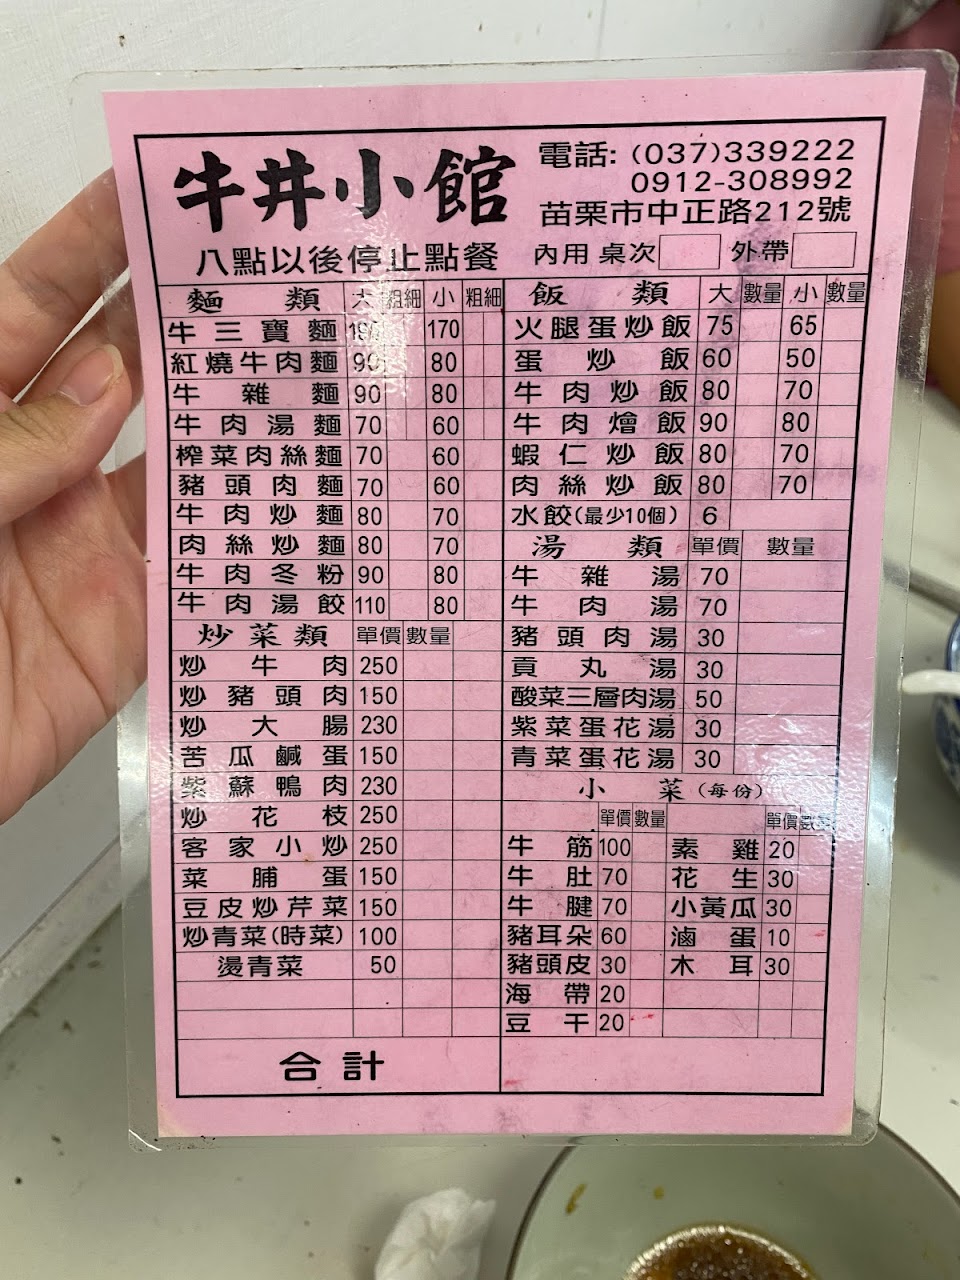 牛井小館
電話: (037)339222
0912-308992
苗栗市中正路212號
八點以後停止點餐
內用 桌次 外帶
麵類 大 粗 細 小 粗 細
牛三寶麵 190 170
紅燒牛肉麵 90 80
牛雜麵 90 80
牛肉湯麵 70 60
榨菜肉絲麵 70 60
豬頭肉麵 70 60
牛肉炒麵 80 70
肉絲炒麵 80 70
牛肉冬粉 90 80
牛肉湯餃 110 80
炒菜類 單價 數量
炒牛肉 250
炒豬頭肉 150
炒大腸 230
苦瓜鹹蛋 150
紫蘇鴨肉 230
炒花枝 250
客家小炒 250
菜脯蛋 150
豆皮炒芹菜 150
炒青菜(時菜) 100
燙青菜 50
合計
飯類 大 數量 小 數量
火腿蛋炒飯 75 65
蛋炒飯 60 50
牛肉炒飯 80 70
牛肉燴飯 90 80
蝦仁炒飯 80 70
肉絲炒飯 80 70
水餃(最少10個) 6
湯類 單價 數量
牛雜湯 70
牛肉湯 70
豬頭肉湯 30
貢丸湯 30
酸菜三層肉湯 50
紫菜蛋花湯 30
青菜蛋花湯 30
小菜(每份)
單價 數量 單價 數量
牛筋 100 素雞 20
牛肚 70 花生 30
牛腱 70 小黃瓜 30
豬耳朵 60 滷蛋 10
豬頭皮 30 木耳 30
海帶 20
豆干 20